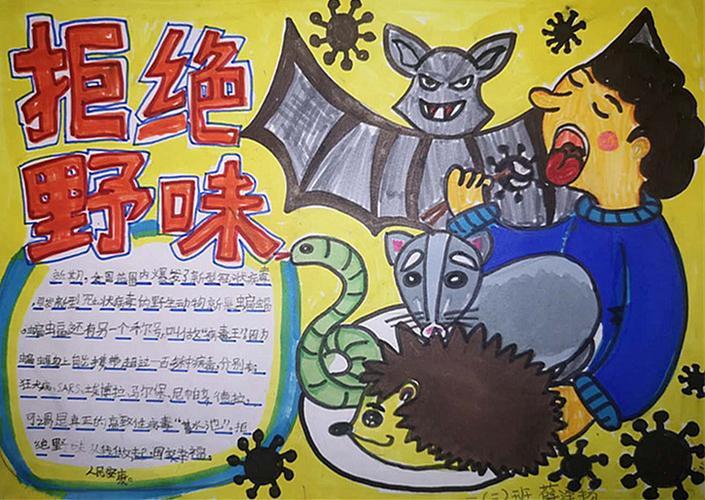 拒绝
野味
近期，全国范围内爆发了新型冠状病毒
新型冠状病毒的野生动物新是蝙蝠
。蝙蝠还有另一个称号，叫做"病毒王"因为
蝙蝠身上能携带超过一百多种病毒，分别有
狂犬病，SARS，埃博拉，马尔保，尼帕，亨德拉，
可谓是真正的高致性病毒"蓄水池"，拒
绝野味从我做起，国安幸福。
人民安康。
一(三)班